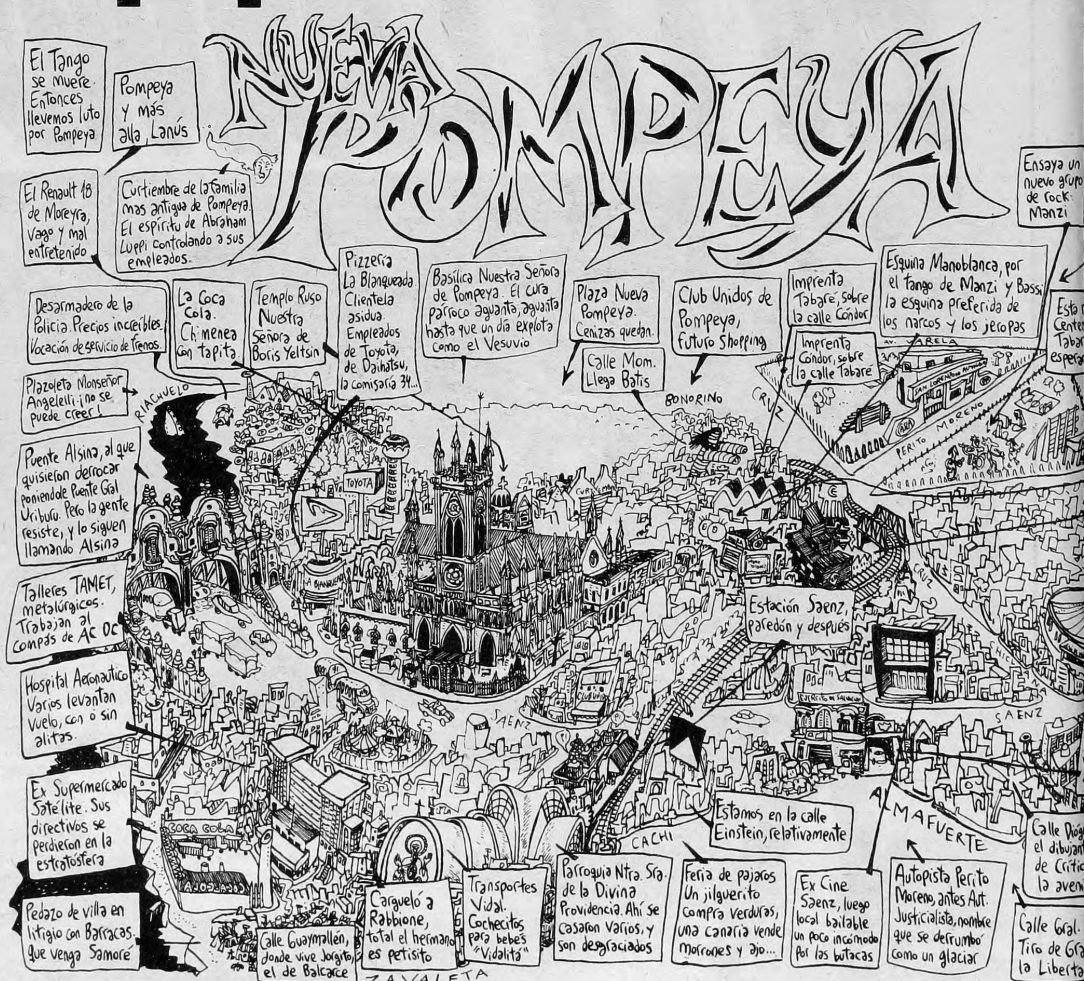 NUEVA
POMPEYA
El Tango
se muere.
Entonces
llevemos luto
por Pompeya.
Pompeya
y más
alla Lanús
El Renault 18
de Moreyra,
vago y mal
entretenido
Curtiembre de la familia
mas antigua de Pompeya.
El espíritu de Abraham
Luppi controlando a sus
empleados.
Desarmadero de la
Policia. Precios increíbles.
Vocación de servicio de frenos.
La Coca
Cola.
Chimenea
con tapita.
Templo Ruso
Nuestra
Señora de
Boris Yeltsin
Pizzería
La Blanqueada
Clientela
asidua.
Empleados
de Toyota,
de Daihatsu,
la comisaría 34...
Basílica Nuestra Señora
de Pompeya. El cura
párroco aguanta, aguanta
hasta que un día explota
como el Vesuvio
Plaza Nueva
Pompeya.
Cenizas quedan.
Calle Mom.
Llega Batis
Club Unidos de
Pompeya,
futuro shopping
Imprenta
Tabaré, sobre
la calle Cóndor
Imprenta
Cóndor, sobre
la calle Tabaré
Esquina Manoblanca, por
el tango de Manzi y Bassi
la esquina preferida de
los narcos y los jeropas
Ensaya un
nuevo grupo
de rock:
Manzi
Esta
Tabar
AV. VARELA
SAN LORENZO
PERITO MORENO
CRUZ
BONORINO
Plazoleta Monseñor
Angelelli. ¡no se
puede creer!
RIACHUELO
Puente Alsina, al que
quisieron derrocar
poniendole Puente Gral
Uriburu. Pero la gente
resiste, y lo siguen
llamando Alsina
TOYOTA
LA BLANQUEADA
Talleres TAMET,
metalúrgicos.
Trabajan al
compás de AC DC
Hospital Aeronautico
Varios levantan
vuelo, con ó sin
alitas.
Estación Saenz,
paredón y después
CRUZ
SAENZ
SAENZ
Ex Supermercado
Satélite. Sus
directivos se
perdieron en la
estratósfera
COCA COLA
Estamos en la calle
Einstein, relativamente
ALMAFUERTE
CACHI
Pedazo de villa en
litigio con Barracas.
que venga Samoré
Calle Guaymallén,
donde vive Jorgito,
el de Balcarce
Carguelo a
Rabbione,
total el hermano
es petisito
Transportes
Vidal.
Cochecitos
para bebés
"Vidalitá"
Parroquia Ntra. Sra.
de la Divina
Providencia. Ahí se
casaron varios, y
son desgraciados
Feria de pajaros
Un jilguerito
compra verduras,
una canaria vende
morrones y ajo...
Ex Cine
Saenz, luego
local bailable
un poco incómodo
por las butacas
Autopista Perito
Moreno, antes Aut.
Justicialista, nombre
que se derrumbó
como un glaciar
Calle
el dibujan
de Crític
la aven
Calle Gral.
Tiro de Gra
la Liberta
ZAVALETA